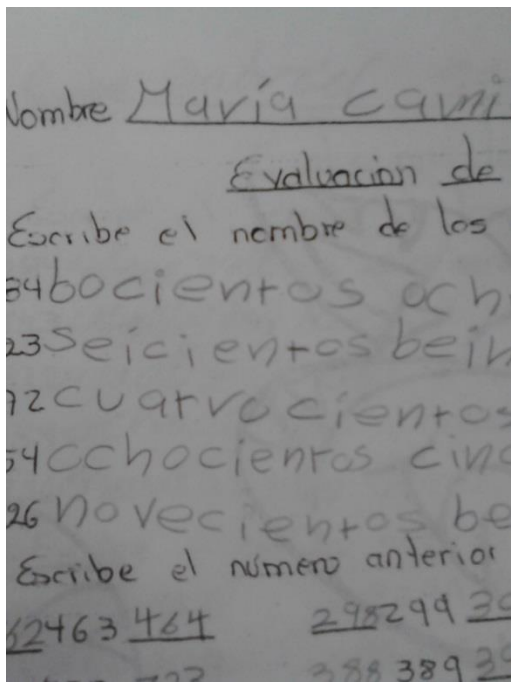 Nombre María cami
Evaluacion de
Escribe el nombre de los
84 bocientos och
23 Seicientos bein
72 cuatrocientos
54 ochocientos cinc
26 novecientos be
Escribe el número anterior
62 463 464 298 299 30
388 389 39